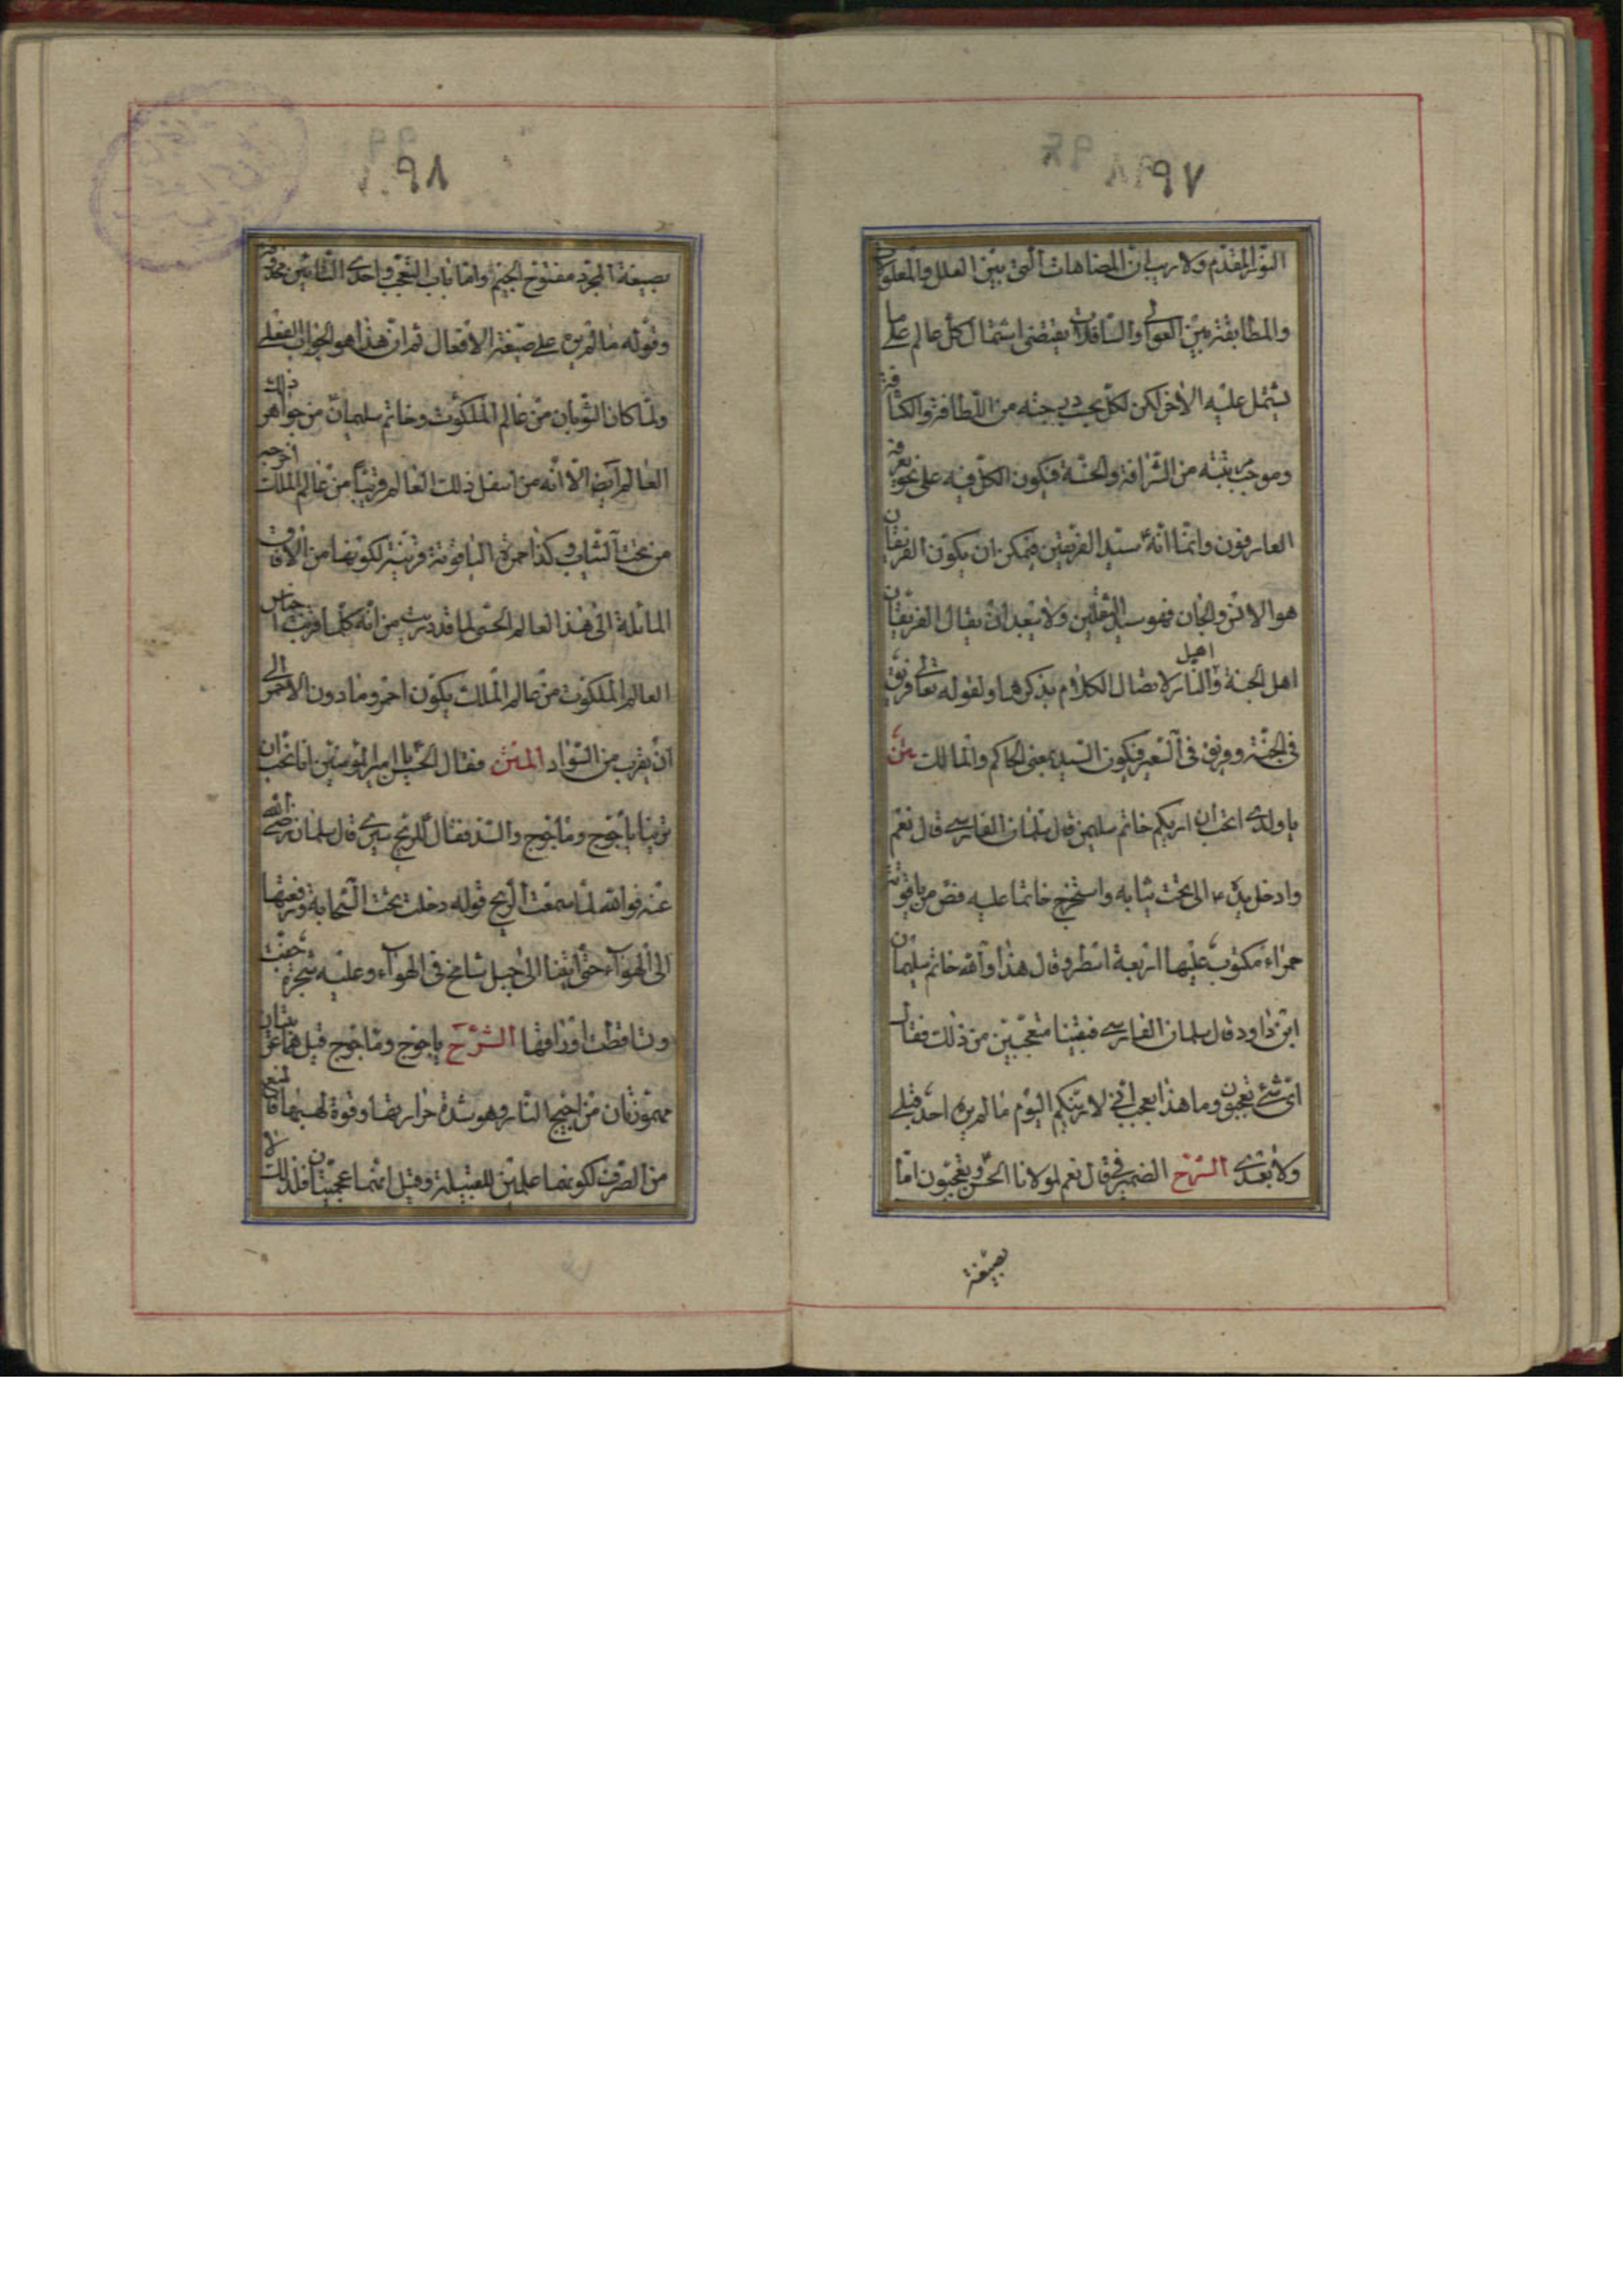 ٩٧
النور المقدّم ولا ريب ان المضاهات التى بين العلل والمعلولات
والمطابقة بين العوالى والسافلات يقتضى اشتمال كل عالم على ما
يشتمل عليه الاخر لكن لكل بحسب درجته من اللطافة والكثافة
وموجب رتبته من الشرافة والخسّة فيكون الكل فيه على نحو يعرفه
العارفون وامّا انّه سيّد الفريقين فيمكن ان يكون الفريقان
هو الانس والجان فهو سيد الثقلين ولا يبعد ان يقال الفريقان
اهل الجنة واهل النار لاتصال الكلام بذكرها ولقوله تعالى فريق
فى الجنّة وفريق فى السّعير فيكون السّيد بمعنى الحاكم والمالك متن
يا ولدى اتحب ان اريكم خاتم سليمن قال سلمان الفارسى قال نعم
وادخل يده الى تحت ثيابه واستخرج خاتما عليه فصّ من ياقوتة
حمراء مكتوب عليها اربعة اسطر وقال هذا والله خاتم سليمان
ابن داود قال سلمان الفارسى فبقينا متعجّبين من ذلك فقال
اىّ شئ تعجبون وما هذا بعجب انى لاريتكم اليوم ما لم يره احد قبلى
ولا بعدى الشرح الضمير فى قال نعم لمولانا الحسن وتعجبون امّا
بصيغة
٩٨
بصيغة المجرّد مفتوح الجيم وامّا باب التعجّب واحدى التائين محذوفة
وقوله ما لم يره على صيغة الافعال ثم ان هذا هو الجواب الفعلى
ولمّا كان الثوبان من عالم الملكوت وخاتم سليمان من جواهر ذلك
العالم ايضا الّا انّه من اسفل ذلك العالم وقريبا من عالم الملك اخرجه
من تحت الثياب وكذا حمرة الياقوتة قرينة لكونها من الافاق
المائلة الى هذا العالم الحسّى لما قد دريت من انّه كلّما اقرب اجناس
العالم الملكوت من عالم الملك يكون احمر وما دون الاحمر الى
ان يقرب من السّواد المتن فقال الحسن يا امير المؤمنين انا نحب ان
ترينا ياجوج وماجوج والسّد فقال للريح سيرى قال سلمان رضى الله
عنه فوالله لمّا سمعت الريح قوله دخلت تحت السّحابة ورفعتها
الى الهوآء حتى اتينا الى جبل شامخ فى الهوآء وعليه شجرة جفّت
وتساقطت اوراقها الشرح ياجوج وماجوج قيل هما عربيتان
مهموزتان من اجيج النّار وهو شدة حرارتها وقوة لهبها فامتنع
من الصّرف لكونهما علمين للقبيلة وقيل انّهما عجميّتان فلذلك لا